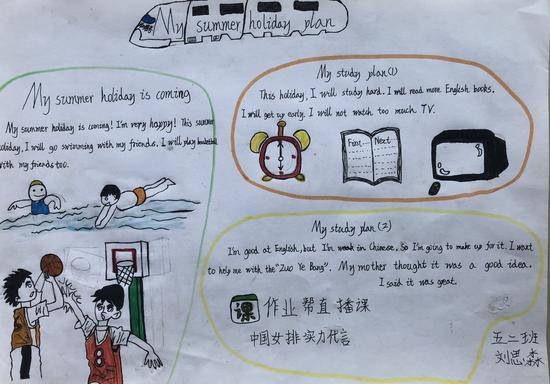 My summer holiday plan
My summer holiday is coming
My summer holiday is coming! I'm very happy! This summer
holiday, I will go swimming with my friends. I will play basketball
with my friends too.
My study plan(1)
This holiday, I will study hard. I will read more English books.
I will get up early. I will not watch too much TV.
First... Next
My study plan(2)
I'm good at English, but I'm weak in Chinese. So I'm going to make up for it. I want
to help me with the "Zuo Ye Bang". My mother thought it was a good idea.
I said it was great.
课 作业帮直播课
中国女排实力代言
五二班
刘思淼